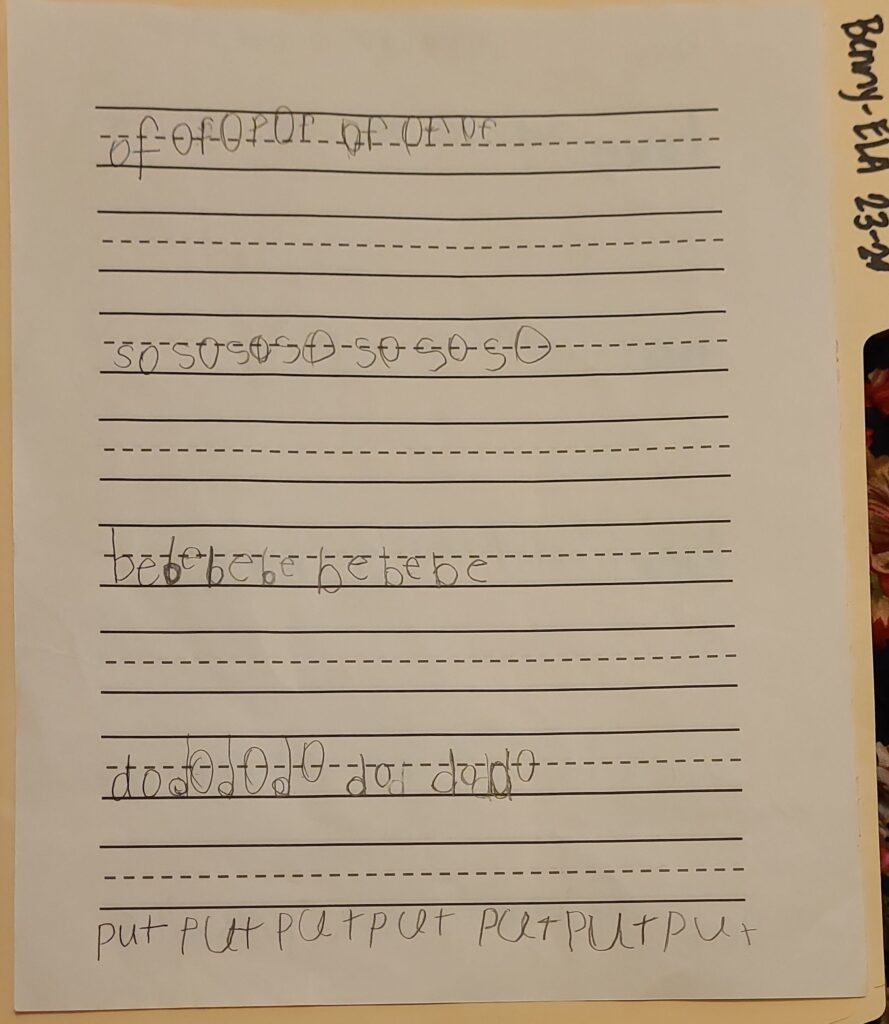 of of of of of of of
so so so so so so so
be be be be be be be
do do do do do do do
put put put put put put put
Benny-ELA 23-24